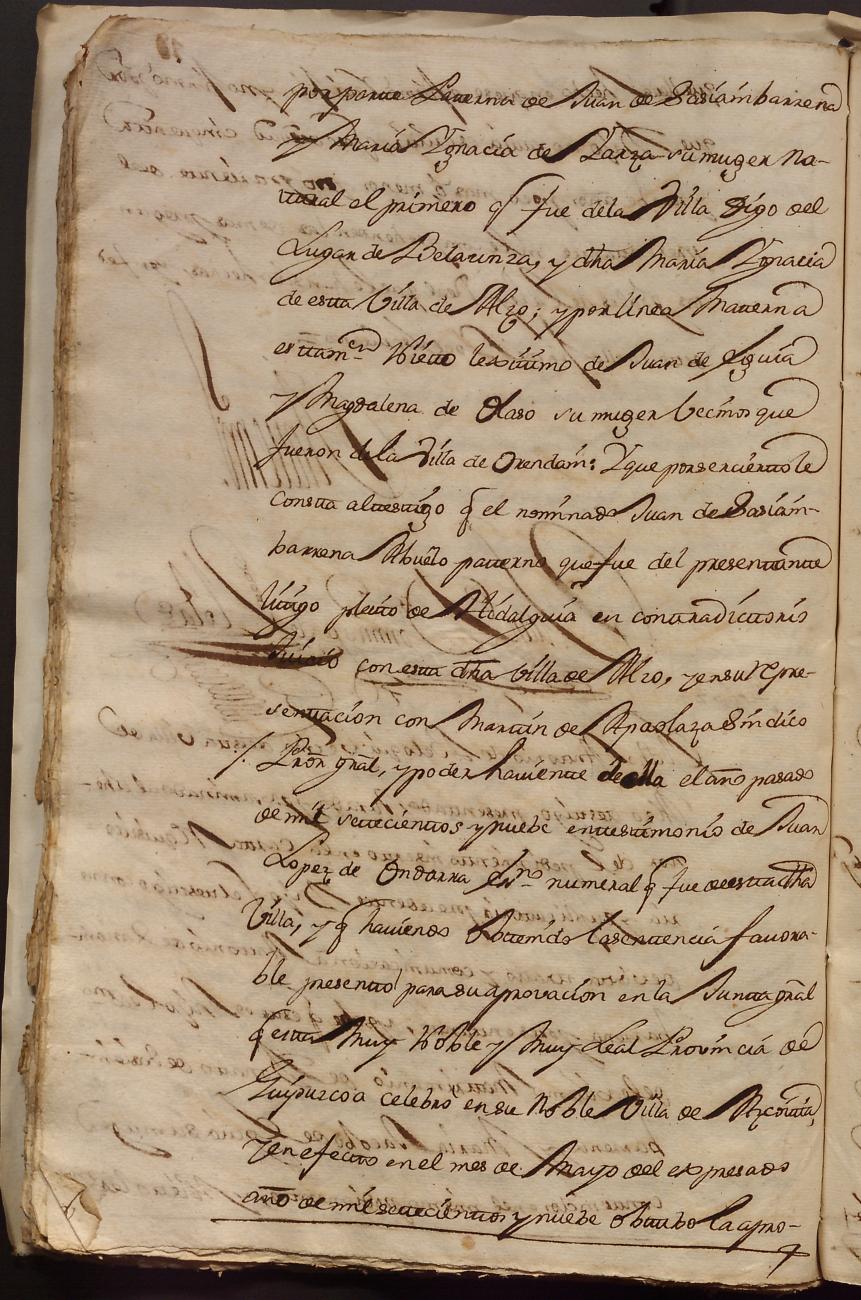 por parte Paterna de Juan de Sasiambarrena
y Maria Ygnacia de Yarza su muger na-
tural el primero q̃ fue dela Villa digo del
Lugar de Belaunza, y dha Maria Ygnacia
de estta Villa de Alzo; y por linea Matterna
es ttamen Nietto lexitimo de Juan de Eguia
y Magdalena de Olaso su muger becinos que
fueron de la Villa de Orendain: Y que por ser cierto le
constta al testtigo q̃ el nominado Juan de Sasiam-
barrena Abuelo patterno que fue del presenttantte
littigo pleito de Hidalguia en contradicttorio
Juicio con estta dha Villa de Alzo, y en su rrepre-
senttacion con Martin de Apaolaza Sindico
Pror gñal, y poder haviente de ella el año pasado
de mil settecienttos y nuebe en testtimonio de Juan
Lopez de Ondarra Esno numeral q̃ fue de estta dha
Villa, y q̃ haviendo obttenido la senttencia favora-
ble presentto para su aprovacion en la Juntta gñal
q̃ estta Muy Noble y Muy Leal Provincia de
Guipuzcoa celebro en su Noble Villa de Azcoittia,
y en efectto en el mes de Mayo del expresado
año de mil settecienttos y nuebe obtubo la apro-